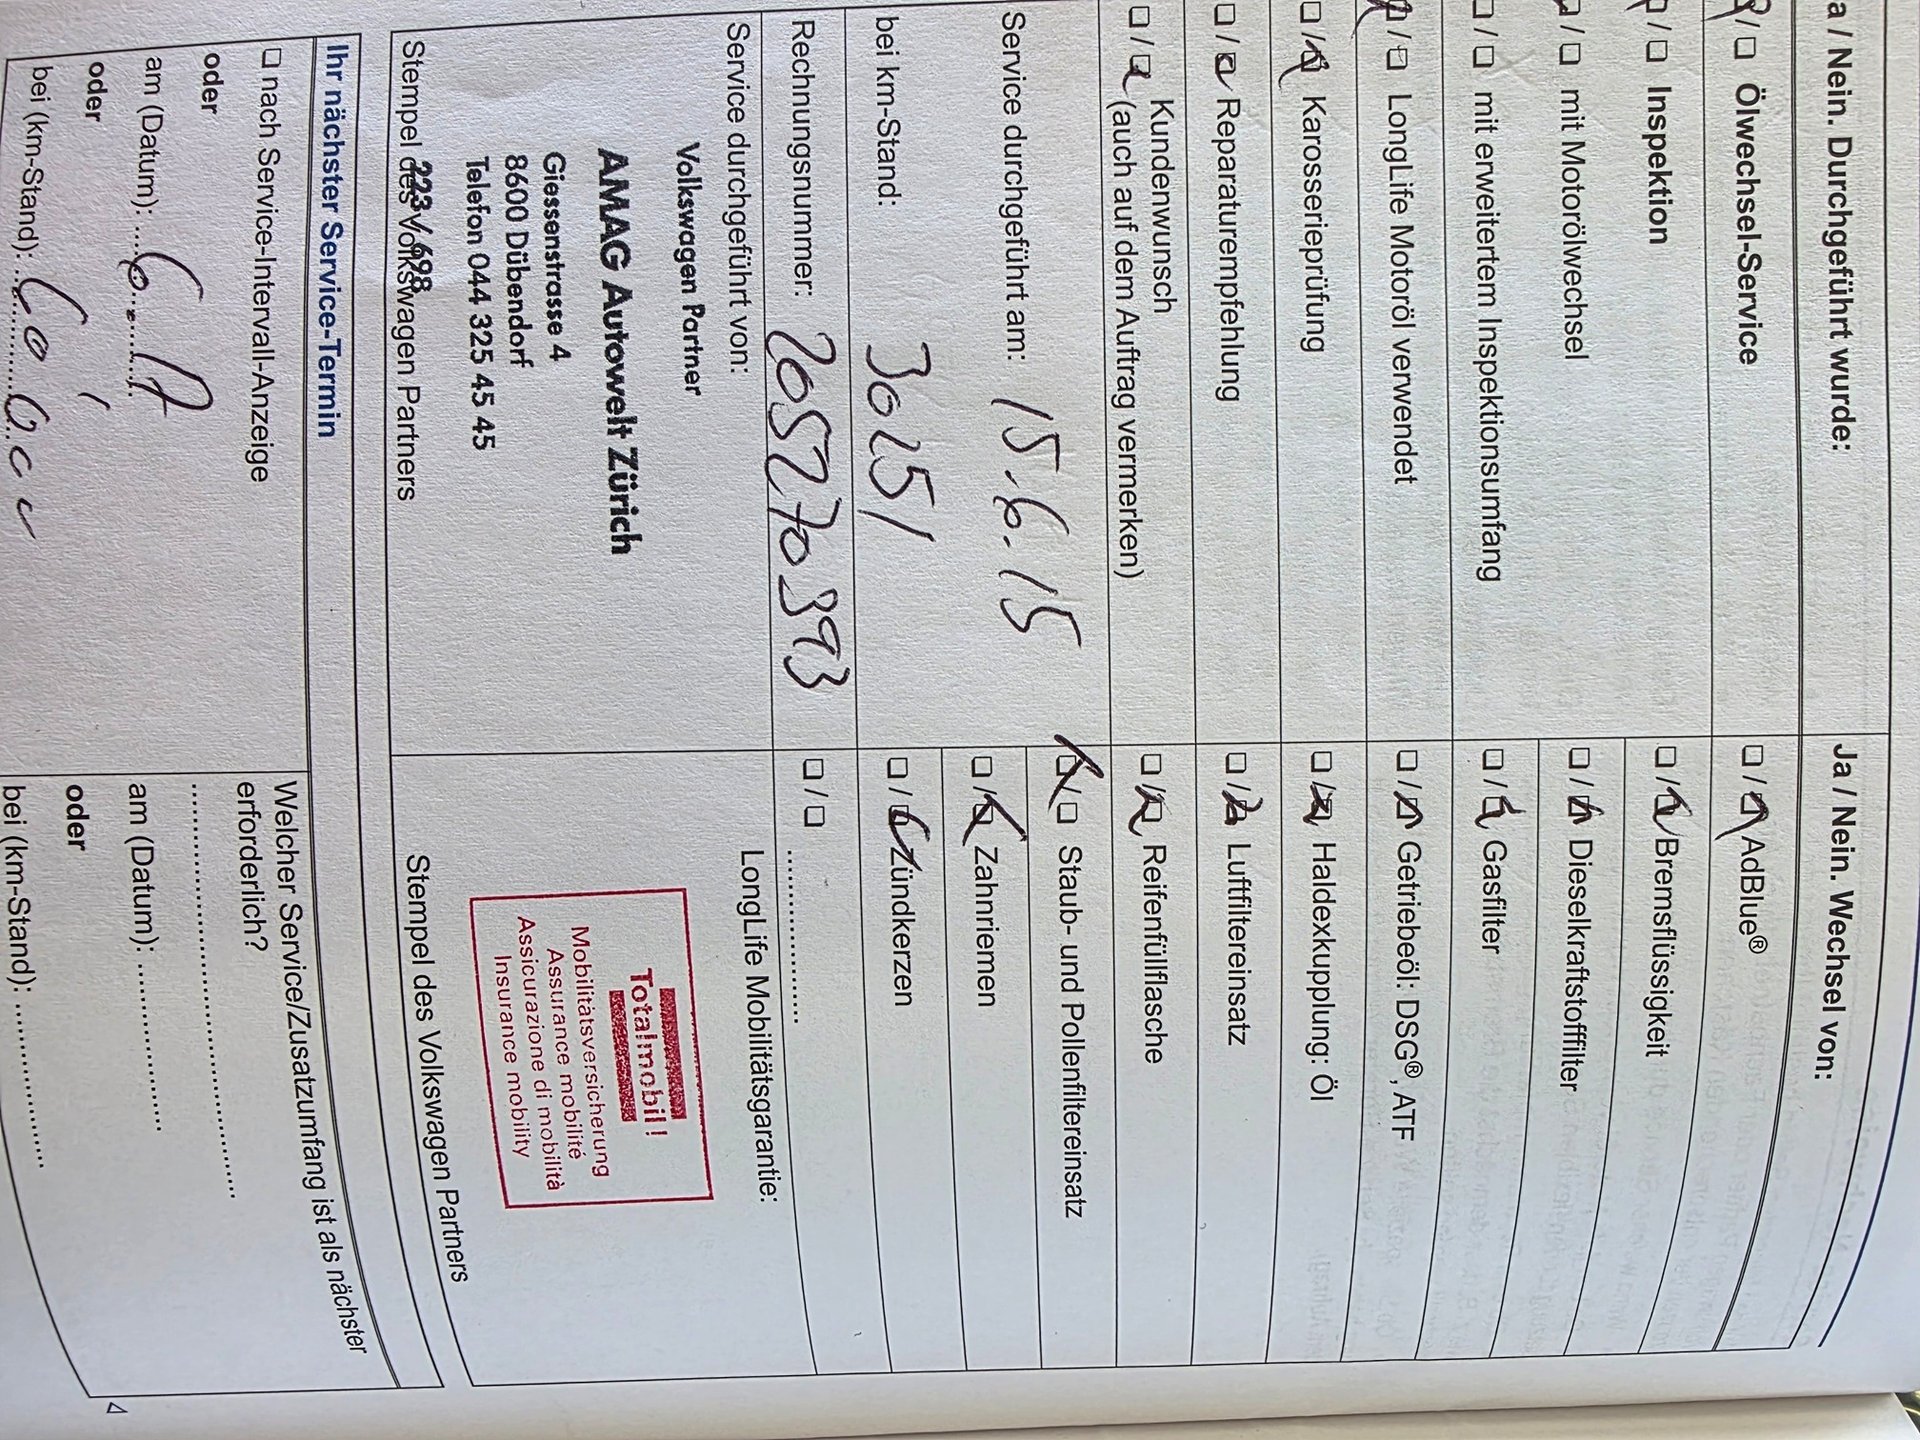 a / Nein. Durchgeführt wurde:
/ ☐ Ölwechsel-Service
/ ☐ Inspektion
/ ☐ mit Motorölwechsel
☐ / ☐ mit erweitertem Inspektionsumfang
/ ☐ LongLife Motoröl verwendet
☐ / ☒ Karosserieprüfung
☐ / ☒ Reparaturempfehlung
Kundenwunsch
☐ / ☒ (auch auf dem Auftrag vermerken)
Service durchgeführt am: 15.6.15
bei km-Stand: 30251
Rechnungsnummer: 205270393
Service durchgeführt von:
Volkswagen Partner
AMAG Autowelt Zürich
Giessenstrasse 4
8600 Dübendorf
Telefon 044 325 45 45
223 / 698
Stempel des Volkswagen Partners
Ja / Nein. Wechsel von:
☐ / ☒ AdBlue®
☐ / ☒ Bremsflüssigkeit
☐ / ☒ Dieselkraftstofffilter
☐ / ☒ Gasfilter
☐ / ☒ Getriebeöl: DSG®, ATF
☐ / ☒ Haldexkupplung: Öl
☐ / ☒ Luftfiltereinsatz
☐ / ☒ Reifenfüllflasche
☒ / ☐ Staub- und Pollenfiltereinsatz
☐ / ☒ Zahnriemen
☐ / ☒ Zündkerzen
☐ / ☐ ..................
LongLife Mobilitätsgarantie:
Totalmobil!
Mobilitätsversicherung
Assurance mobilité
Assicurazione di mobilità
Insurance mobility
Stempel des Volkswagen Partners
Ihr nächster Service-Termin
☐ nach Service-Intervall-Anzeige
oder
am (Datum): 6.17
oder
bei (km-Stand): 60'000
Welcher Service/Zusatzumfang ist als nächster
erforderlich?
am (Datum): ..................
oder
bei (km-Stand): ..................